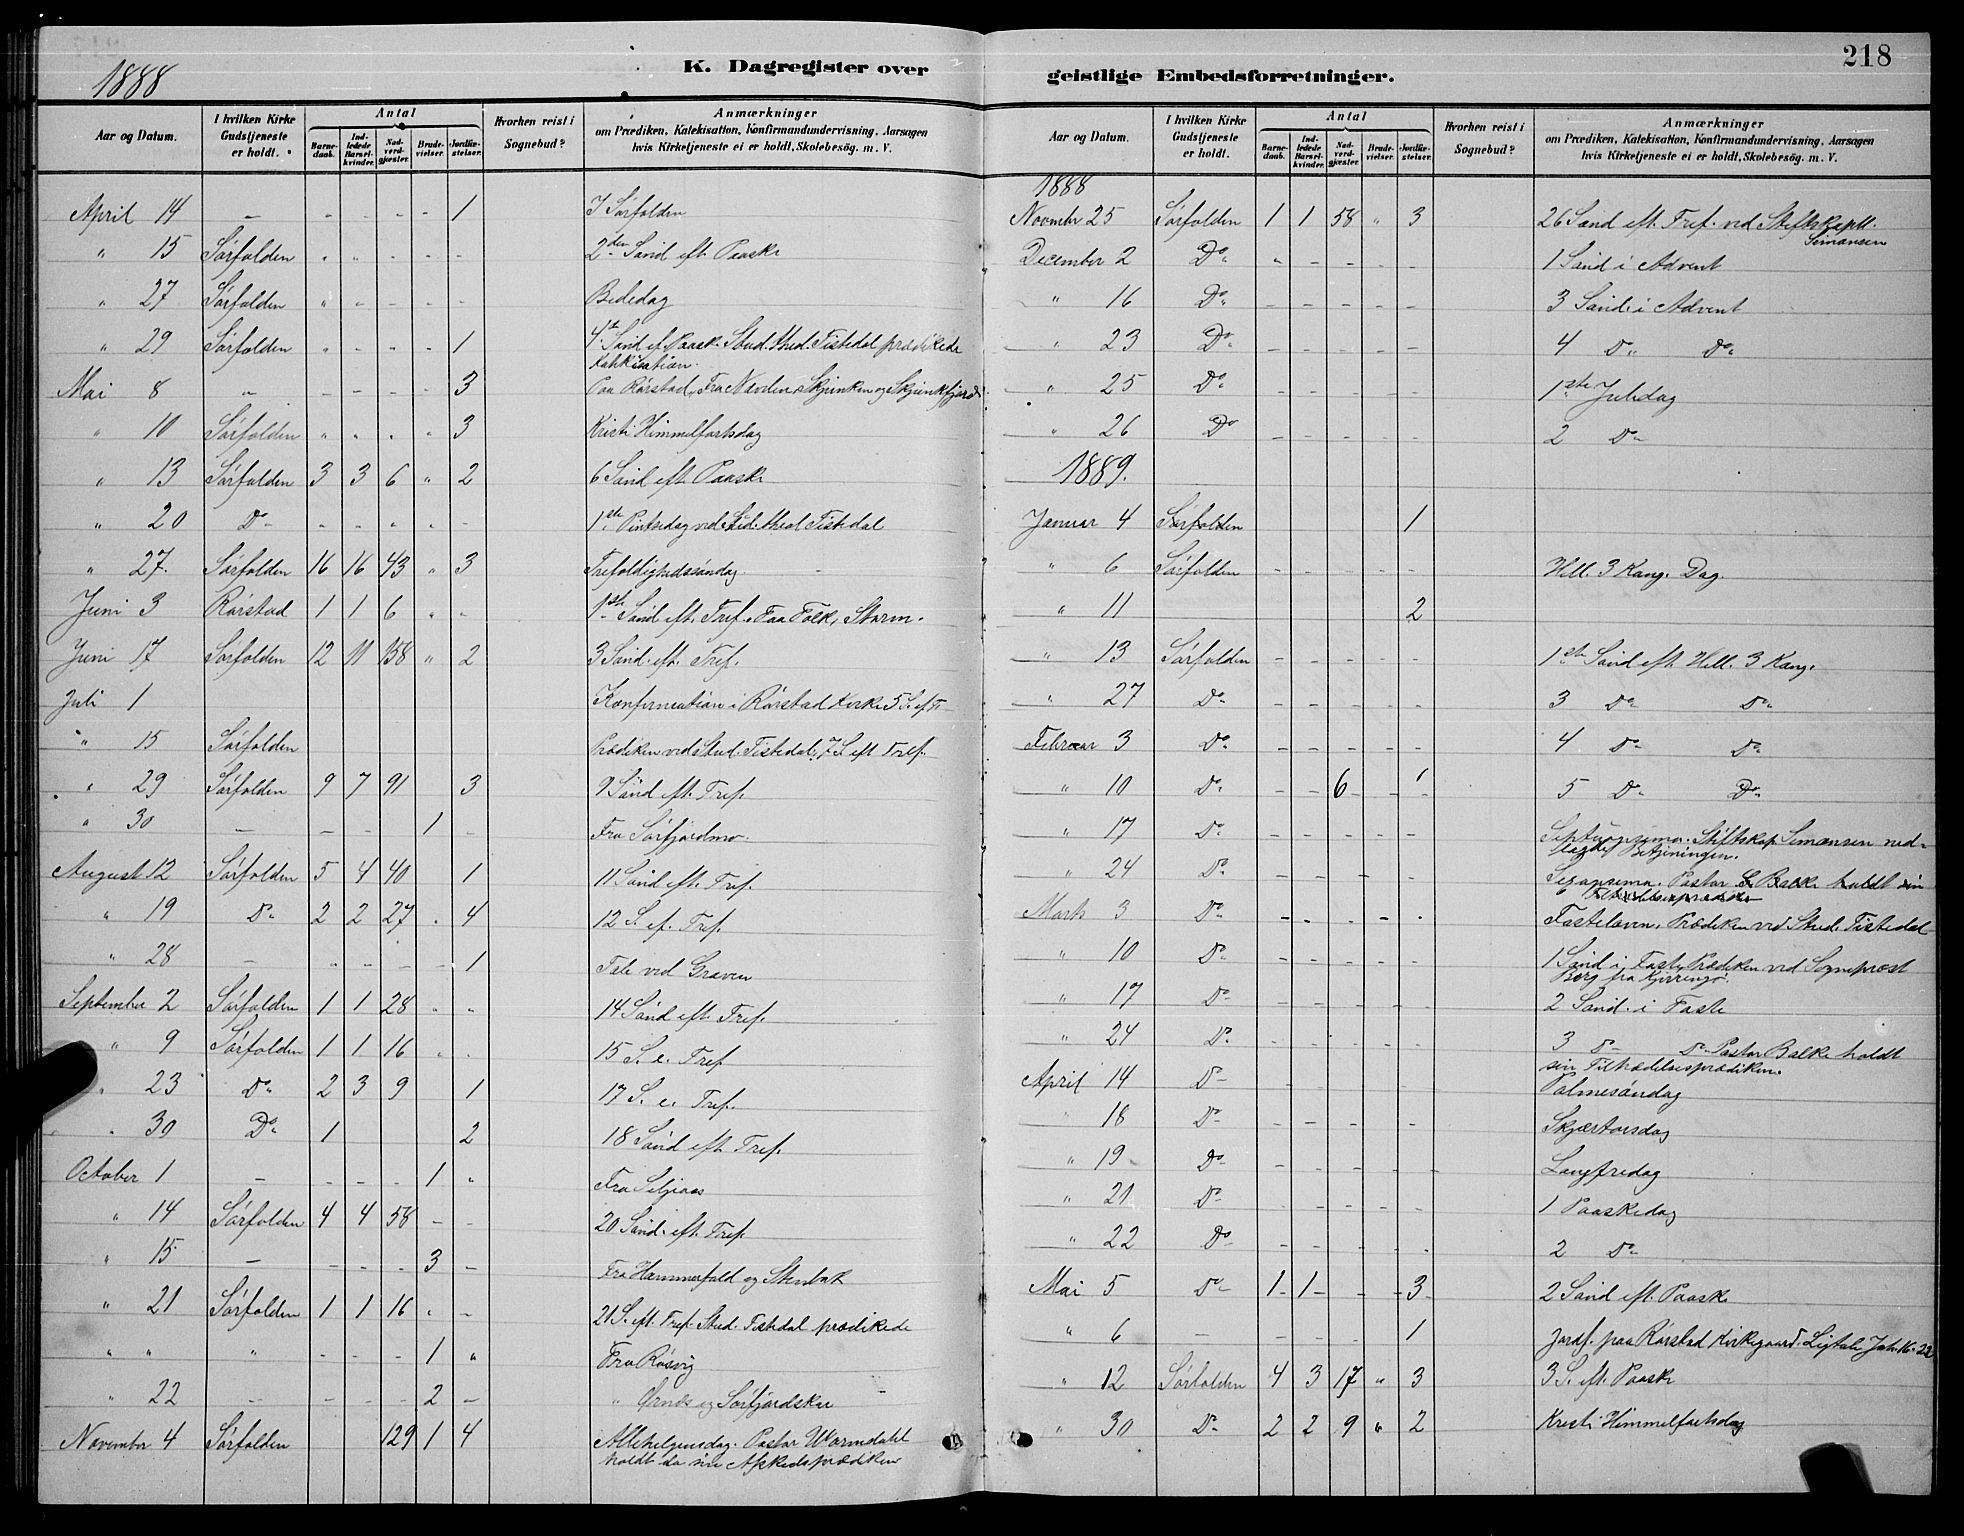 218
1888
K. Dagregister over
geistlige Embedsforretninger.
Aar og Datum.
I hvilken Kirke
Gudstjeneste
er holdt.
Antal
Barne-
daab.
Ind-
ledede
Barsel-
kvinder.
Nad-
verd-
gjæster.
Brude-
vielser.
Jordfæ-
stelser.
Hvorhen reist i
Sognebud?
Anmærkninger
om Prædiken, Katekisation, Konfirmandundervisning, Aarsagen
hvis Kirketjeneste ei er holdt, Skolebesög. m. V.
April 14 – – – – – 1 I Sørfolden
" 15 Sørfolden - - - - - 2den Sønd eft. Paaske
" 27 Sørfolden " - - - - Bededag
" 29 Sørfolden - - - - 1 4de Sønd ef. Paask. Stud. theol. Tistedal prædikede
Katekisation.
Mai 8 " - - - - 3 Paa Rørstad, Fra Nævelen, Skjunken og Skjunkfjord
" 10 Sørfolden " " " " 3 Kristi Himmelfartsdag
" 13 Sørfolden 3 3 6 " 2 6 Sønd eft. Paaske
" 20 Do " " " " - 1ste Pintsedag ved Stud. theol Tistedal
" 27. Sørfolden 16 16 43 " 3 Trefoldighedssøndag
Juni 3 Rørstad 1 1 6 " - 1ste Sønd eft. Tref. Faa Folk, Storm.
Juni 17 Sørfolden 12 11 158 " 2 3 Sønd. eft. Tref.
Juli 1 Konfirmation i Rørstad Kirke 5 S. ef. Tr
" 15 Sørfolden Prædiken ved Stud. Tistedal, 7 S eft Tref.
" 29 Sørfolden 9 7 91 3 9 Sønd eft. Tref.
" 30 – – – 1 – Fra Sørfjordmo.
August 12 Sørfolden 5 4 40 1 11 Sønd eft. Tref.
" 19 Do 2 2 27 . 4 12 S. ef. Tref.
" 28 – - - - - 1 Tale ved Graven
September 2 Sørfolden 1 1 28 " " 14 Sønd eft. Tref.
" 9 Sørfolden 1 1 16 - - 15 S. e. Tref
" 23 Do 2 3 9 1 17 S. e. Tref.
" 30 Do 1 2 18 Sønd eft. Tref.
October 1 – - - - 1 " Fra Seljeaas
" 14 Sørfolden 4 4 58 - - 20 Sønd. eft. Tref.
" 15 – - - - 3 – Fra Hammerfald og Stenbak
" 21 Sørfolden 1 1 16 - - 21 S. eft. Tref. Stud. Tistedal prædikede
" " " - - - 1 " Fra Røsvig
" 22 – - - - 2 – " Ørnes og Sørfjordskar
November 4 Sørfolden 129 1 4 Allehelgensdag. Pastor Warmdahl
holdt da sin Afskedsprædiken
Aar og Datum.
I hvilken Kirke
Gudstjeneste
er holdt.
Antal
Barne-
daab.
Ind-
ledede
Barsel-
kvinder.
Nad-
verd-
gjæster.
Brude-
vielser.
Jordfæ-
stelser.
Hvorhen reist i
Sognebud?
Anmærkninger
om Prædiken, Katekisation, Konfirmandundervisning, Aarsagen
hvis Kirketjeneste ei er holdt, Skolebesög. m. V.
1888
November 25 Sørfolden 1 1 58 " 3 26 Sønd eft. Tref. ved Stiftskapll.
Simonsen
December 2 Do " - - - - 1 Sønd i Advent
" 16 Do - - - - - 3 Sønd. i Advent
" 23 Do - - - - - 4 Do Do
" 25 Do - - - - - 1ste Juledag
" 26 Do - - - - - 2 Do
1889.
Januar 4 Sørfolden 1
" 6 Sørfolden - - - - - Hell. 3 Kong. Dag.
" 11 2
" 13 Sørfolden - - - - - 1ste Sønd eft. Hell. 3 Kong.
" 27 Do - - - - - 3 Do Do
Februar 3 Do - - - - - 4 Do Do
" 10 Do - - 6 - 1 5 Do Do
" 17 Do - - - - - Septuagesima. Stiftskap. Simonsen ned-
lagde Betjeningen.
" 24 Do - - - - - Sexagesima. Pastor Balke holdt sin
Tiltrædelsesprædiken
Marts 3 Do - - - - - Fastelavn, Prædiken ved Stud. Tistedal
" 10 Do - - - - - 1 Sønd i Faste, Prædiken ved Sogneprest
Berg fra Kjerringø.
" 17 Do - - - - - 2 Sønd. i Faste
" 24 Do - - - - - 3 Do Do Pastor Balke holdt
sin Tiltrædelsesprædiken.
April 14 Do - - - - - Palmesøndag
" 18 Do - - - - - Skjærtorsdag
" 19 Do - - - - - Langfredag
" 21 Do - - - - - 1 Paaskedag
" 22 Do - - - - - 2 Do
Mai 5 Do 1 1 - - 3 2 Sønd eft. Paaske
" 6 – - - - - 1 Jordf. paa Rørstad Kirkegaard. Ligtale Joh. 16-22
" 12 Sørfolden 4 3 17 " 3 3 S. eft. Paaske
" 30 Do 2 2 9 " 2 Kristi Himmelfartsdag